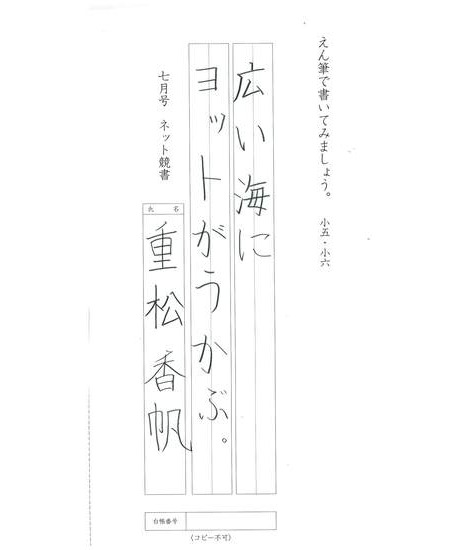 えん筆で書いてみましょう。 小五・小六
広い海に
ヨットがうかぶ。
七月号 ネット競書
氏名
重松香帆
台帳番号
(コピー不可)